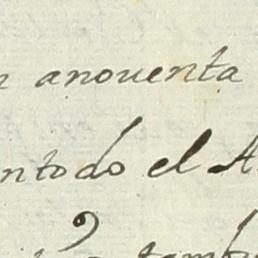 anouenta
ntodo el A
tambu